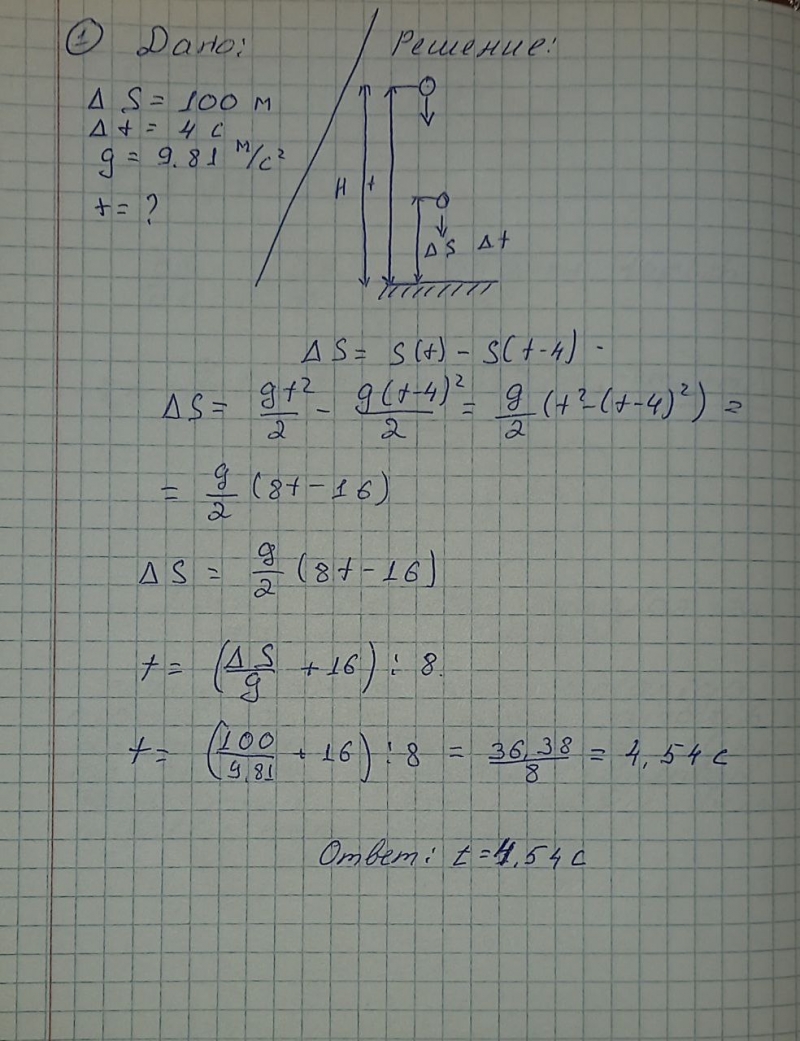 ① Дано: Решение:
Δ S = 100 м
Δ t = 4 с
g = 9.81 м/с²
t = ?
H t
Δ S Δ t
Δ S = S(t) - S(t-4)
Δ S = gt²/2 - g(t-4)²/2 = g/2 (t²-(t-4)²) =
= g/2 (8t - 16)
Δ S = g/2 (8t - 16)
t = (Δ S/g + 16) : 8
t = (100/9,81 + 16) : 8 = 36,38/8 = 4,54 с
Ответ: t = 4,54 с